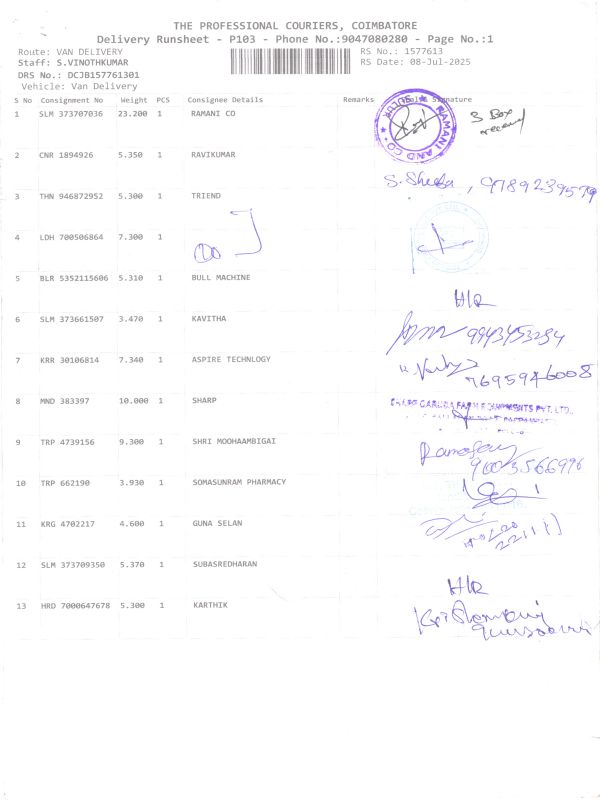 THE PROFESSIONAL COURIERS, COIMBATORE
Delivery Runsheet - P103 - Phone No.:9047080280 - Page No.:1
Route: VAN DELIVERY
RS No.: 1577613
Staff: S.VINOTHKUMAR
RS Date: 08-Jul-2025
DRS No.: DCJB157761301
Vehicle: Van Delivery
S No Consignment No Weight PCS Consignee Details Remarks Signature
1 SLM 373707036 23.200 1 RAMANI CO RAMANI AND CO 3 Box
2 CNR 1894926 5.350 1 RAVIKUMAR
S. Sheeba, 9789239579
3 THN 946872952 5.300 1 TRIEND
4 LDH 700506864 7.300 1
5 BLR 5352115606 5.310 1 BULL MACHINE
H/R
6 SLM 373661507 3.470 1 KAVITHA
9943453284
7 KRR 30106814 7.340 1 ASPIRE TECHNLOGY
7695946008
8 MND 383397 10.000 1 SHARP
SHARP GARUDA FARM EQUIPMENTS PVT. LTD.,
9 TRP 4739156 9.300 1 SHRI MOOHAAMBIGAI
9003566996
10 TRP 662190 3.930 1 SOMASUNRAM PHARMACY
11 KRG 4702217 4.600 1 GUNA SELAN
12 SLM 373709350 5.370 1 SUBASREDHARAN
H/R
13 HRD 7000647678 5.300 1 KARTHIK